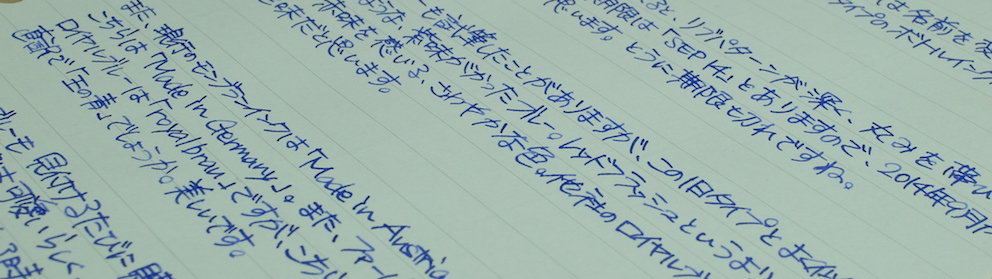 は名前を変
タイプのボトルインク
ると、リブパターンが深く、丸みを帯び
期限は「SEP 14」とありますので、2014年9月
思います。とうに期限も切れですね。
ーも記事したことがありますが、この旧タイプとよく似
ような、紫味がかったブルー。レッドフラッシュというより
赤味を感じる、さわやかな色。他社のロイヤルブ
味だと思います。
また、現行のモンブランインクは「Made in Austria
こちらは「Made in Germany」。また、ファー
ロイヤルブルーは「royal brau」ですが、こちら
直訳で「王の青」でしょうか。美しいです。
ルーも 見付けるたびに
は可愛らしく